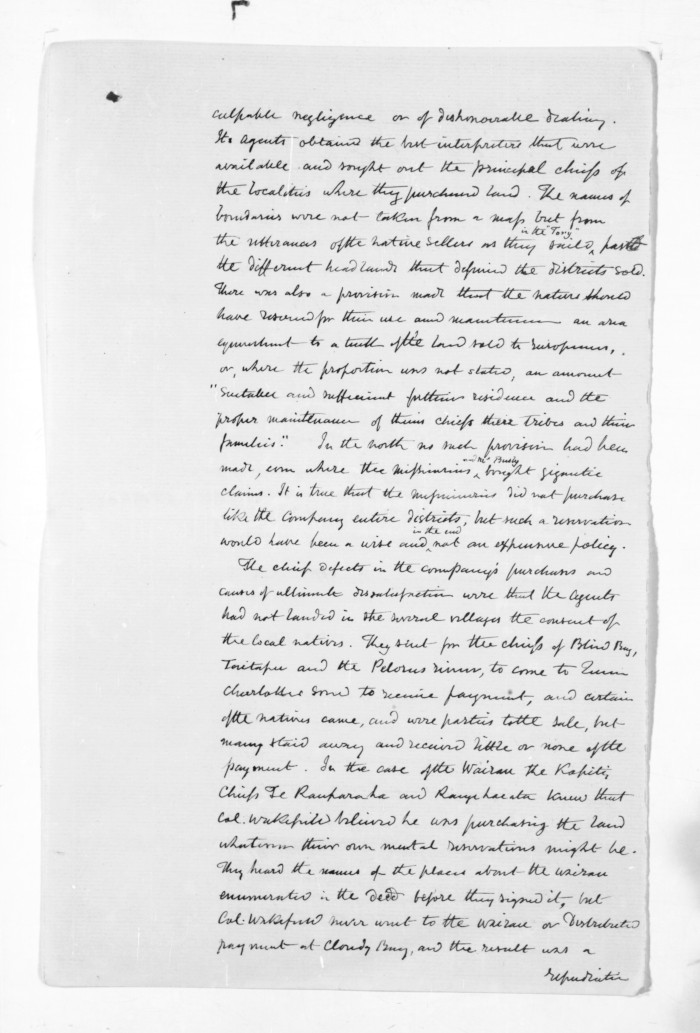 culpable negligence or of dishonourable dealing.
Its agents obtained the best interpreters that were
available and sought out the principal chiefs of
the localities where they purchased land. The names of
boundaries were not taken from a map but from
in the "Tory"
the utterances of the native sellers as they sailed past
the different headlands that defined the districts sold.
There was also a provision made that the natives should
have reserved for their use and maintenance an area
equivalent to a tenth of the land sold to Europeans,
or, where the proportion was not stated, an amount
"suitable and sufficient for their residence and the
proper maintenance of their chiefs their tribes and their
families". In the north no such provision had been
and Mr Busby
made, even where the missionaries bought gigantic
claims. It is true that the missionaries did not purchase
like the Company entire districts, but such a reservation
in the end
would have been a wise and not an expensive policy.
The chief defects in the company's purchases and
causes of ultimate dissatisfaction were that the agents
had not landed in the several villages the consent of
the local natives. They sent for the chiefs of Blind Bay,
Taitapu and the Pelorus river, to come to Queen
Charlotte Sound to receive payment, and certain
of the natives came, and were parties to the sale, but
many staid away and received little or none of the
payment. In the case of the Wairau the Kapiti
Chiefs Te Rauparaha and Rangihaeata knew that
Col. Wakefield believed he was purchasing the land
whatever their own mental reservations might be.
They heard the names of the places about the wairau
enumerated in the deed before they signed it, but
Col. Wakefield never went to the wairau or distributed
payment at Cloudy Bay, and the result was a
repudiation